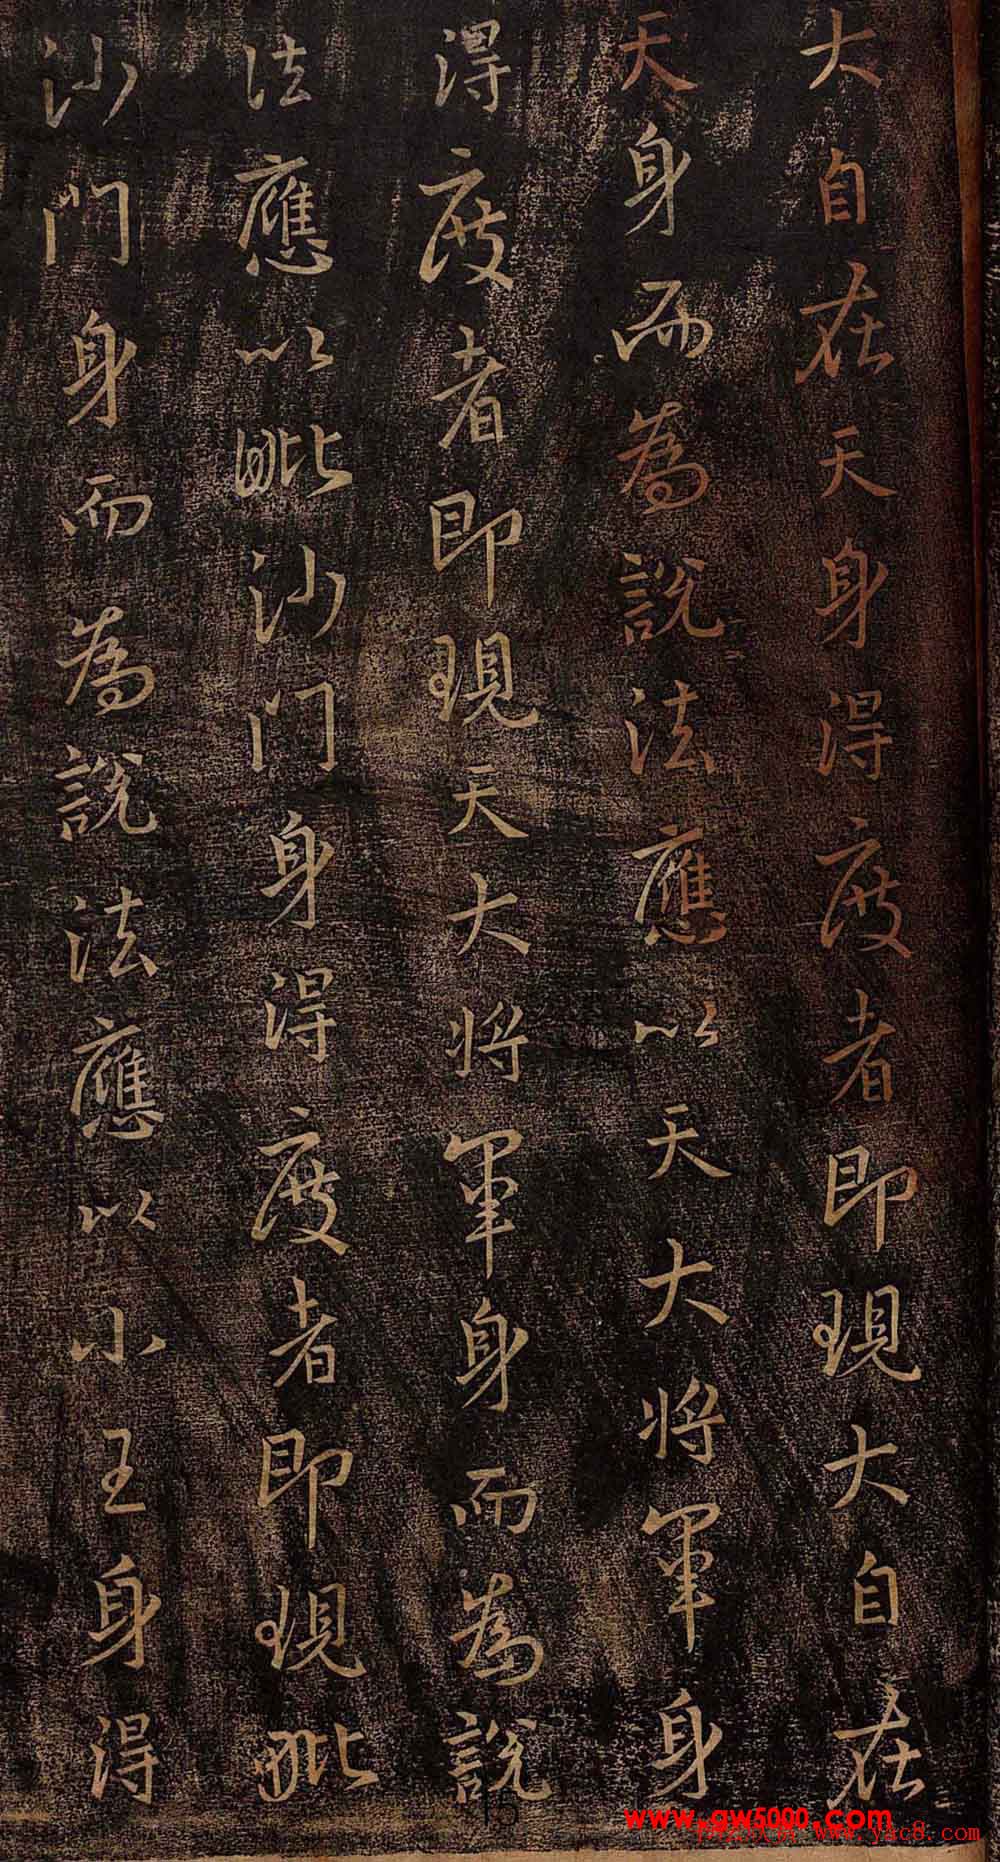 大自在天身得度者即現大自在
天身而為說法應以天大將軍身
得度者即現天大將軍身而為說
法應以毗沙門身得度者即現毗
沙門身而為說法應以小王身得
15
www.gw5000.com
www.yac8.com